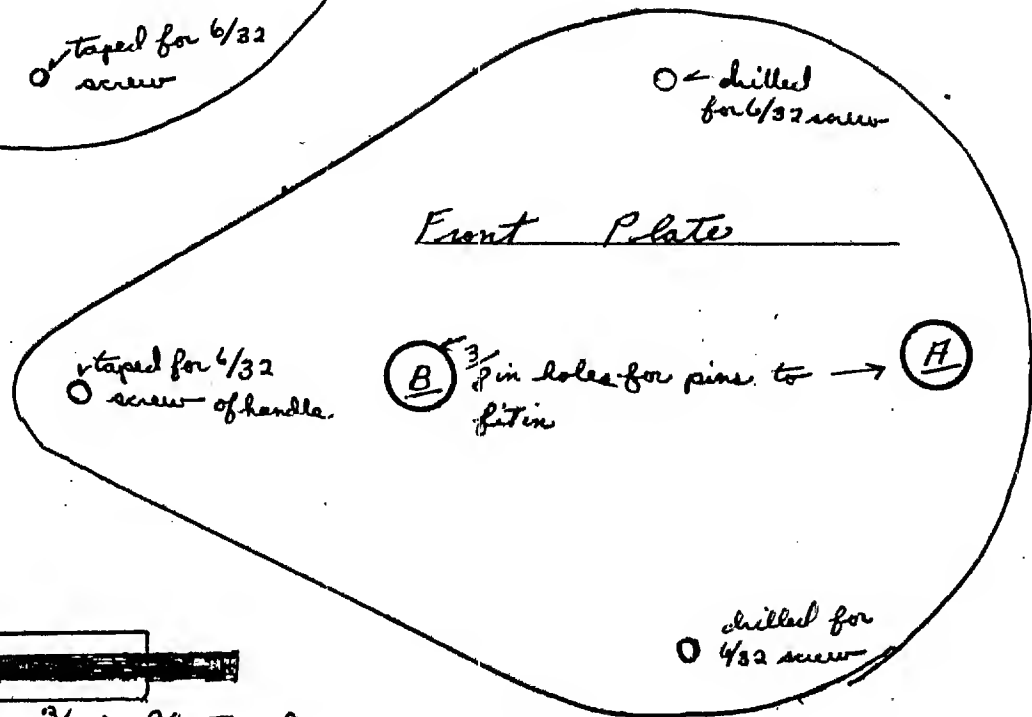 taped for 6/32
screw
drilled
for 6/32 screw
Front Plate
taped for 6/32
screw of handle.
B
3/8 in holes for pins to →
fit in
A
drilled for
6/32 screw